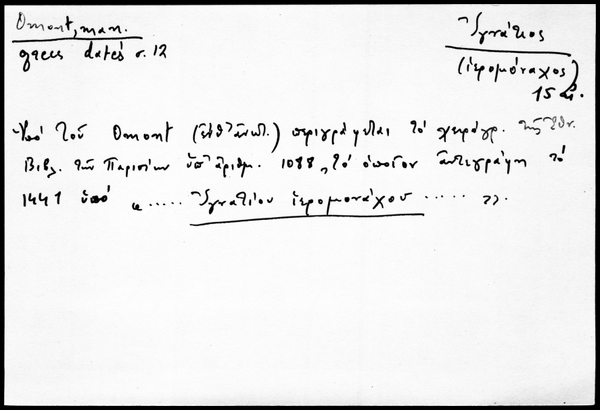 Omont, man.
grecs datés σ. 12
Ἰγνάτιος
(ἱερομόναχος)
15 αἰ.
Ὑπό τοῦ Omont (ἔνθ' ἀνωτ.) περιγράφεται τό χειρόγρ. τῆς Ἐθν.
Βιβλ. τῶν Παρισίων ὑπ' ἀριθμ. 1088, τό ὁποῖον ἀντεγράφη τό
1441 ὑπό « ..... Ἰγνατίου ἱερομονάχου ..... ».